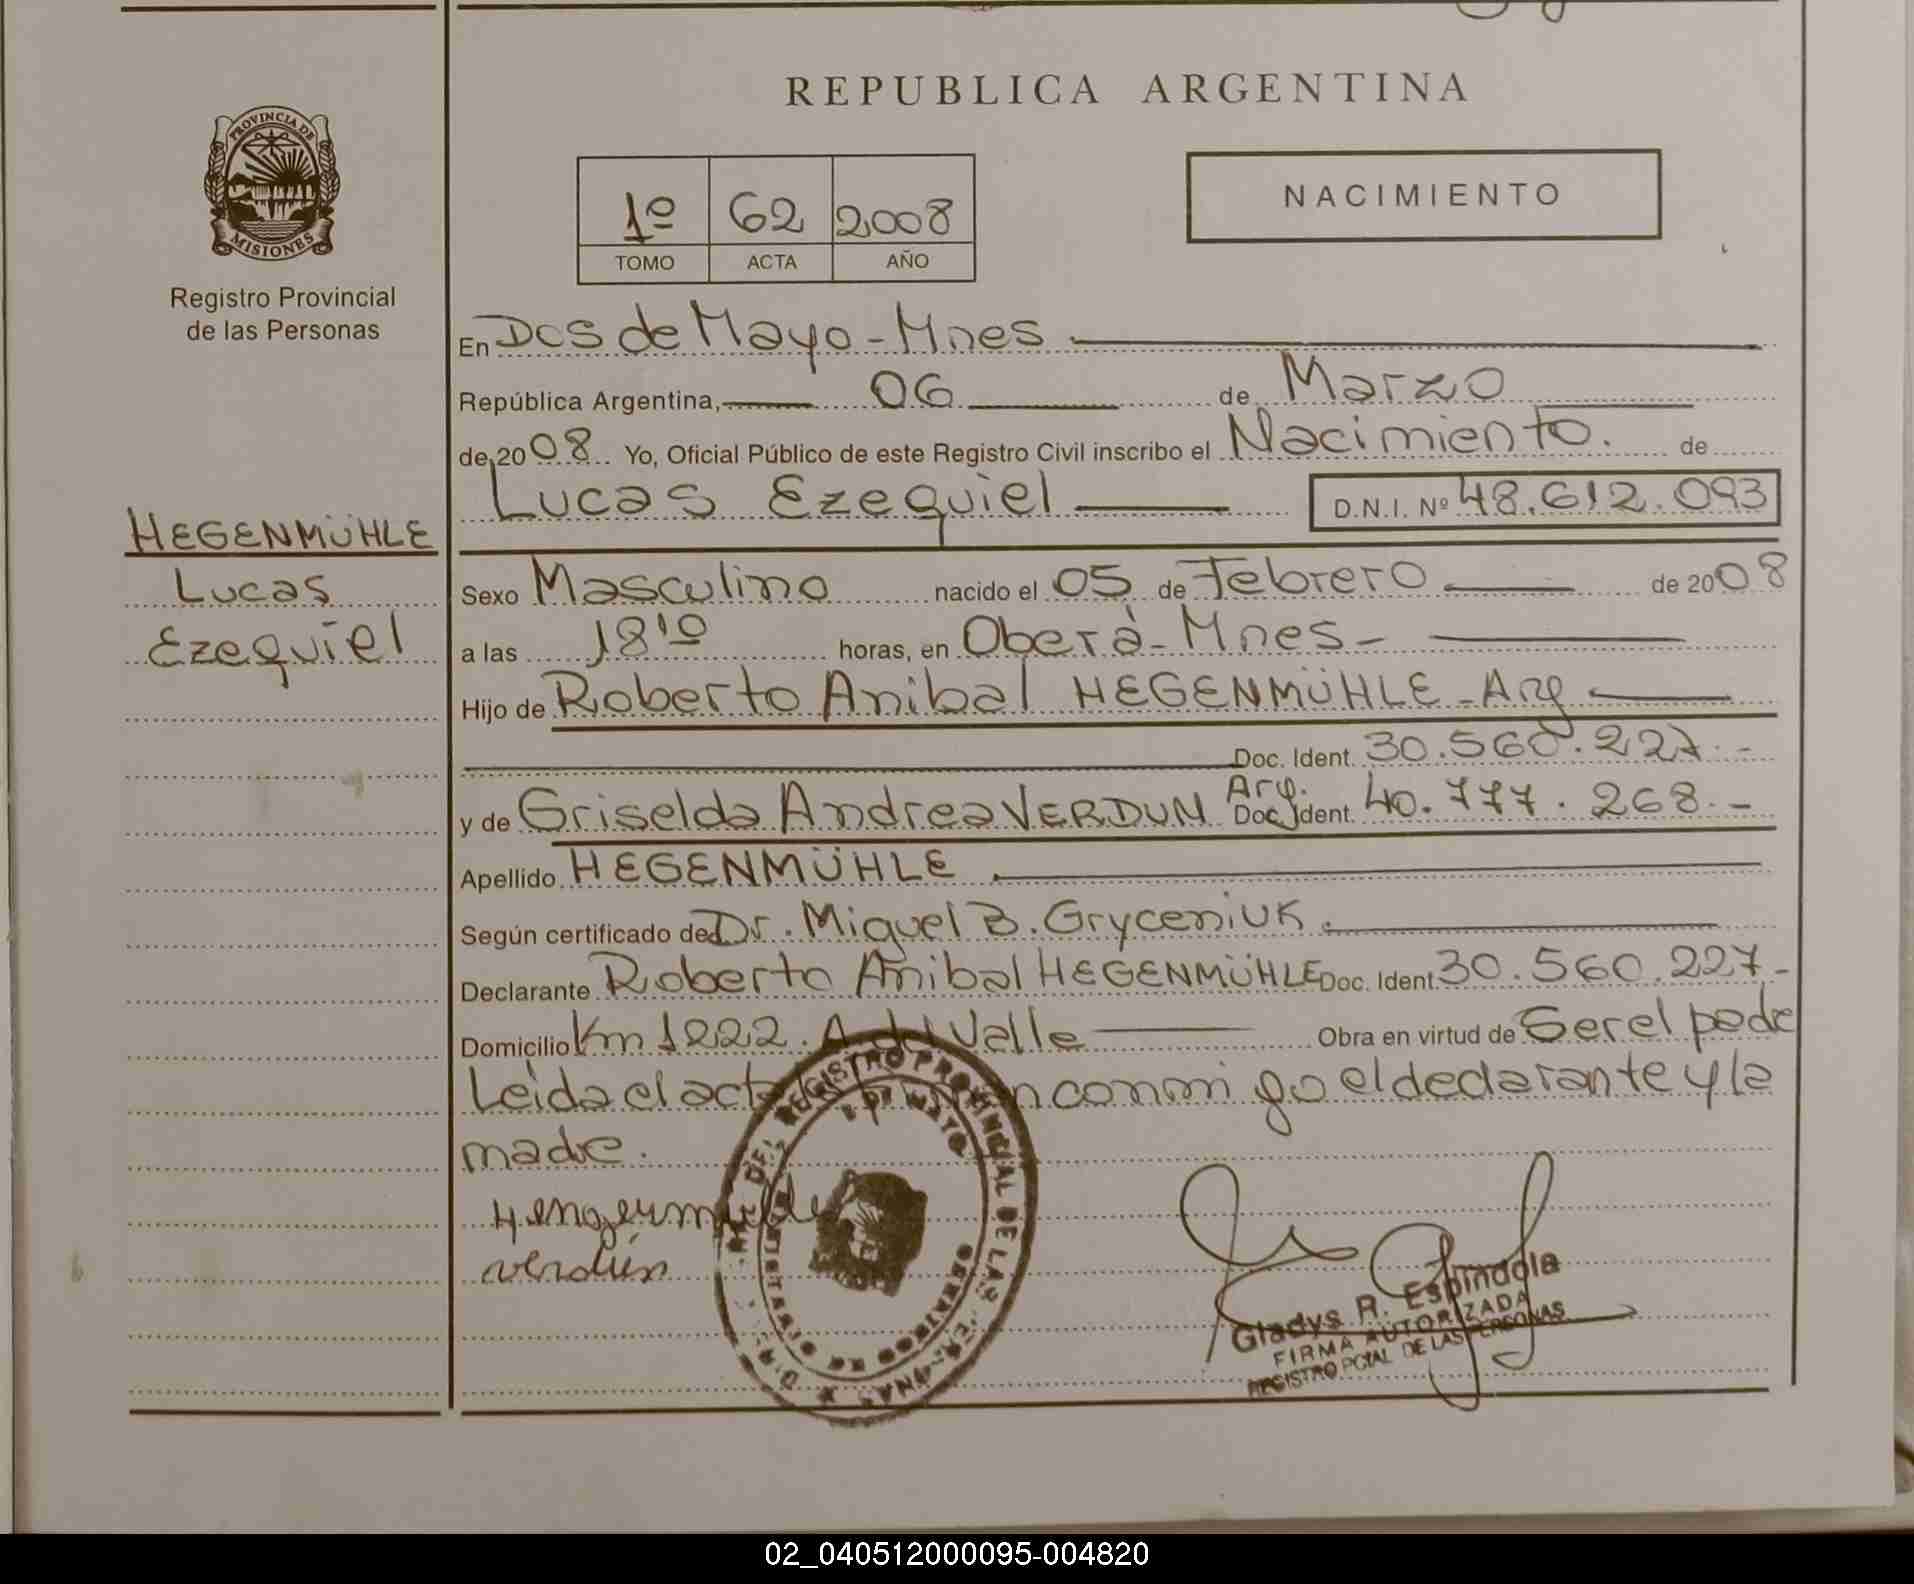 REPUBLICA ARGENTINA
PROVINCIA DE
MISIONES
Registro Provincial
de las Personas
NACIMIENTO
1º 62 2008
TOMO ACTA AÑO
En Dos de Mayo - Mnes
República Argentina, 06 de Marzo
de 2008 Yo, Oficial Público de este Registro Civil inscribo el Nacimiento. de
Lucas Ezequiel D.N.I. Nº 48.612.093
HEGENMÜHLE
Lucas
Ezequiel
Sexo Masculino nacido el 05 de Febrero de 2008
a las 18'º horas, en Oberá - Mnes -
Hijo de Roberto Anibal HEGENMÜHLE - Arg
Doc. Ident. 30.560.227.-
y de Griselda Andrea VERDUN Arg. Doc. Ident. 40.777.268.-
Apellido HEGENMÜHLE.
Según certificado de Dr. Miguel B. Gryceniuk.
Declarante Roberto Anibal HEGENMÜHLE Doc. Ident. 30.560.227-
Domicilio Km 1222. A. del Valle Obra en virtud de Ser el padre
Leida el acta conmigo el declarante y la
madre.
verdún
REGISTRO PROVINCIAL DE LAS
Gladys R. Espindola
FIRMA AUTORIZADA
REGISTRO PCIAL DE LAS PERSONAS
02_040512000095-004820